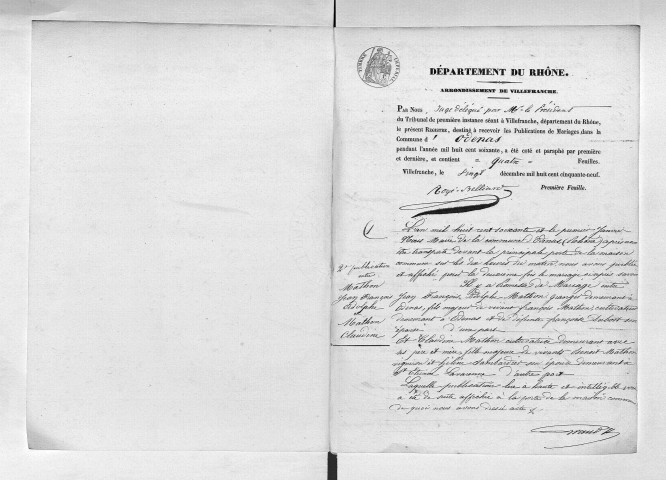 TIMBRE IMPÉRIAL
DÉPARTEMENT DU RHÔNE.
ARRONDISSEMENT DE VILLEFRANCHE.
Par Nous Juge délégué par Mr le Président
du Tribunal de première instance séant à Villefranche, département du Rhône,
le présent Registre, destiné à recevoir les Publications de Mariages dans la
Commune d' Odenas
pendant l'année mil huit cent soixante, a été coté et paraphé par première
et dernière, et contient quatre Feuilles.
Villefranche, le vingt décembre mil huit cent cinquante-neuf.
Première Feuille.
L'an mil huit cent soixante et le premier Janvier
Nous Maire de la commune d'Odenas (Rhône) après nous
être transporté devant la principale porte de la maison
commune sur les dix heures du matin nous avons publié
et affiché pour la deuxième fois le mariage ci après savoir
2e publication
entre
Mathon
Jean François
Adolphe
et
Mathon
Claudine
Il y a Promesse de Mariage entre
Jean François Adolphe Mathon granger demeurant à
Odenas, fils majeur de vivant François Mathon, cultivateur
demeurant à Odenas et de défunte Françoise son
épouse d'une part
Et Claudine Mathon cultivatrice demeurant avec
ses père et mère, fille majeure de vivants Benoit Mathon
vigneron et son épouse demeurant à
St Etienne Lavarenne d'autre part
Laquelle publication lue à haute et intelligible voix
a été de suite affichée à la porte de la maison commune
de quoi nous avons dressé acte